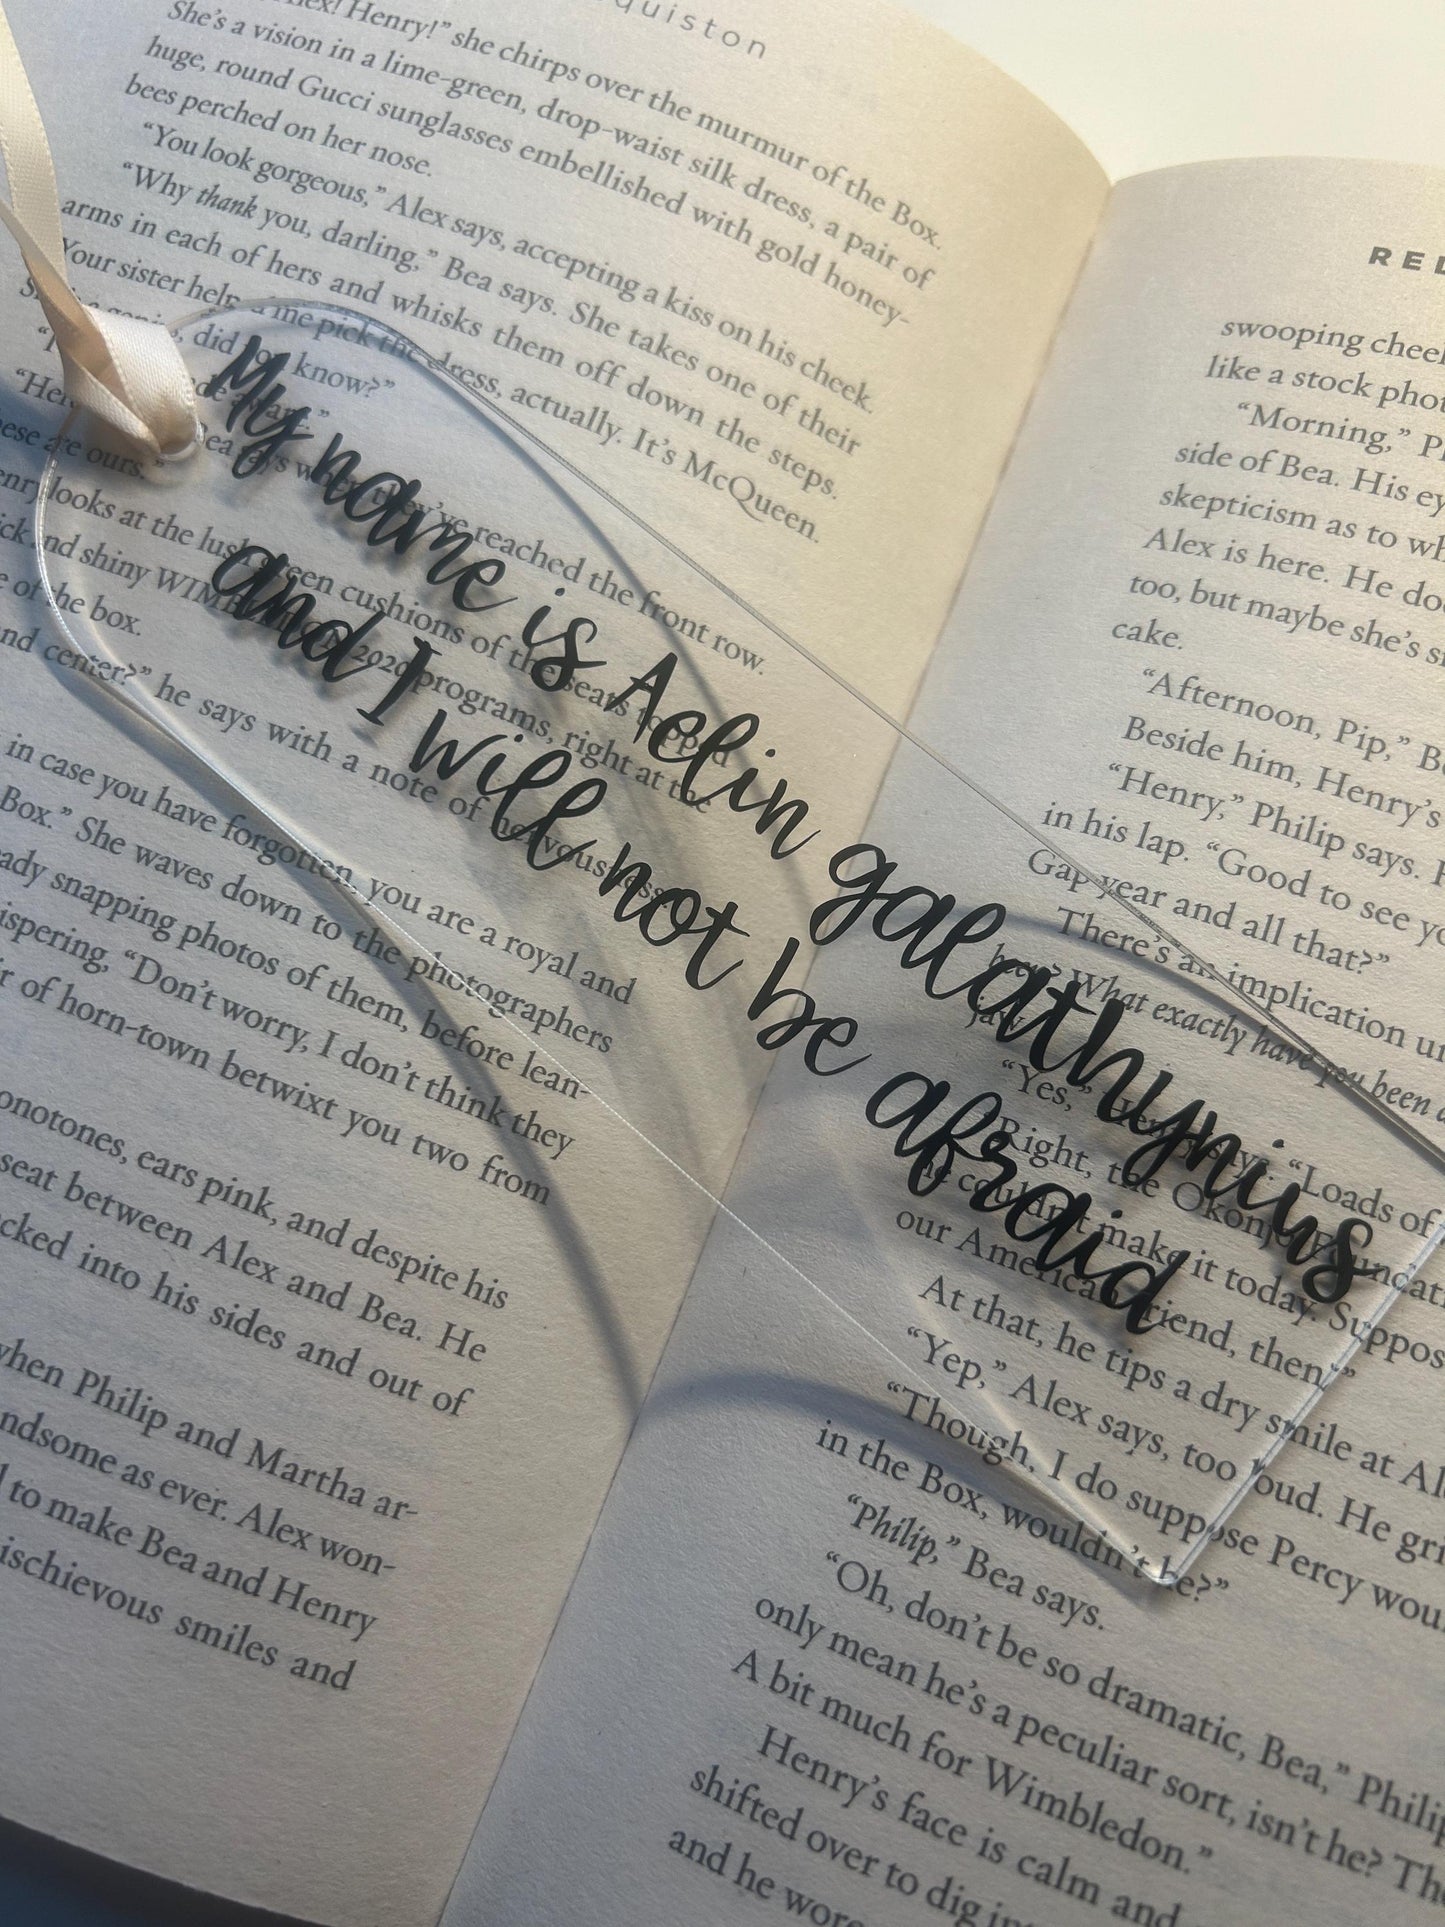 quiston
Henry!” she chirps over the murmur of the Box.
She’s a vision in a lime-green, drop-waist silk dress, a pair of
huge, round Gucci sunglasses embellished with gold honey-
bees perched on her nose.
“You look gorgeous,” Alex says, accepting a kiss on his cheek.
“Why thank you, darling,” Bea says. She takes one of their
arms in each of hers and whisks them off down the steps.
“Your sister helped me pick the dress, actually. It’s McQueen.
did you know?”
they’ve reached the front row.
looks at the lush green cushions of the seats topped
and shiny WIMBLEDON 2020 programs, right at the
of the box.
and center?” he says with a note of nervousness
in case you have forgotten, you are a royal and
Box.” She waves down to the photographers
snapping photos of them, before lean-
“Don’t worry, I don’t think they
of horn-town betwixt you two from
ears pink, and despite his
seat between Alex and Bea. He
into his sides and out of
when Philip and Martha ar-
as ever. Alex won-
to make Bea and Henry
smiles and
My name is Aelin galathynius
and I will not be afraid
RED
swooping
like a stock
“Morning,”
side of Bea. His
skepticism as to
Alex is here. He
too, but maybe she’s
cake.
“Afternoon, Pip,”
Beside him, Henry’s
“Henry,” Philip says.
in his lap. “Good to see
Gap year and all that?”
There’s an implication
What exactly have you been
jaw
“Yes,” Henry says. “Loads of
“Right, the Okonjo Foundation
he couldn’t make it today. Suppose
our American friend, then?”
At that, he tips a dry smile at
“Yep,” Alex says, too loud. He
“Though, I do suppose Percy
in the Box, wouldn’t he?”
“Philip,” Bea says.
“Oh, don’t be so dramatic, Bea,” Philip
only mean he’s a peculiar sort, isn’t he?
A bit much for Wimbledon.”
Henry’s face is calm and
shifted over to dig
and he wore